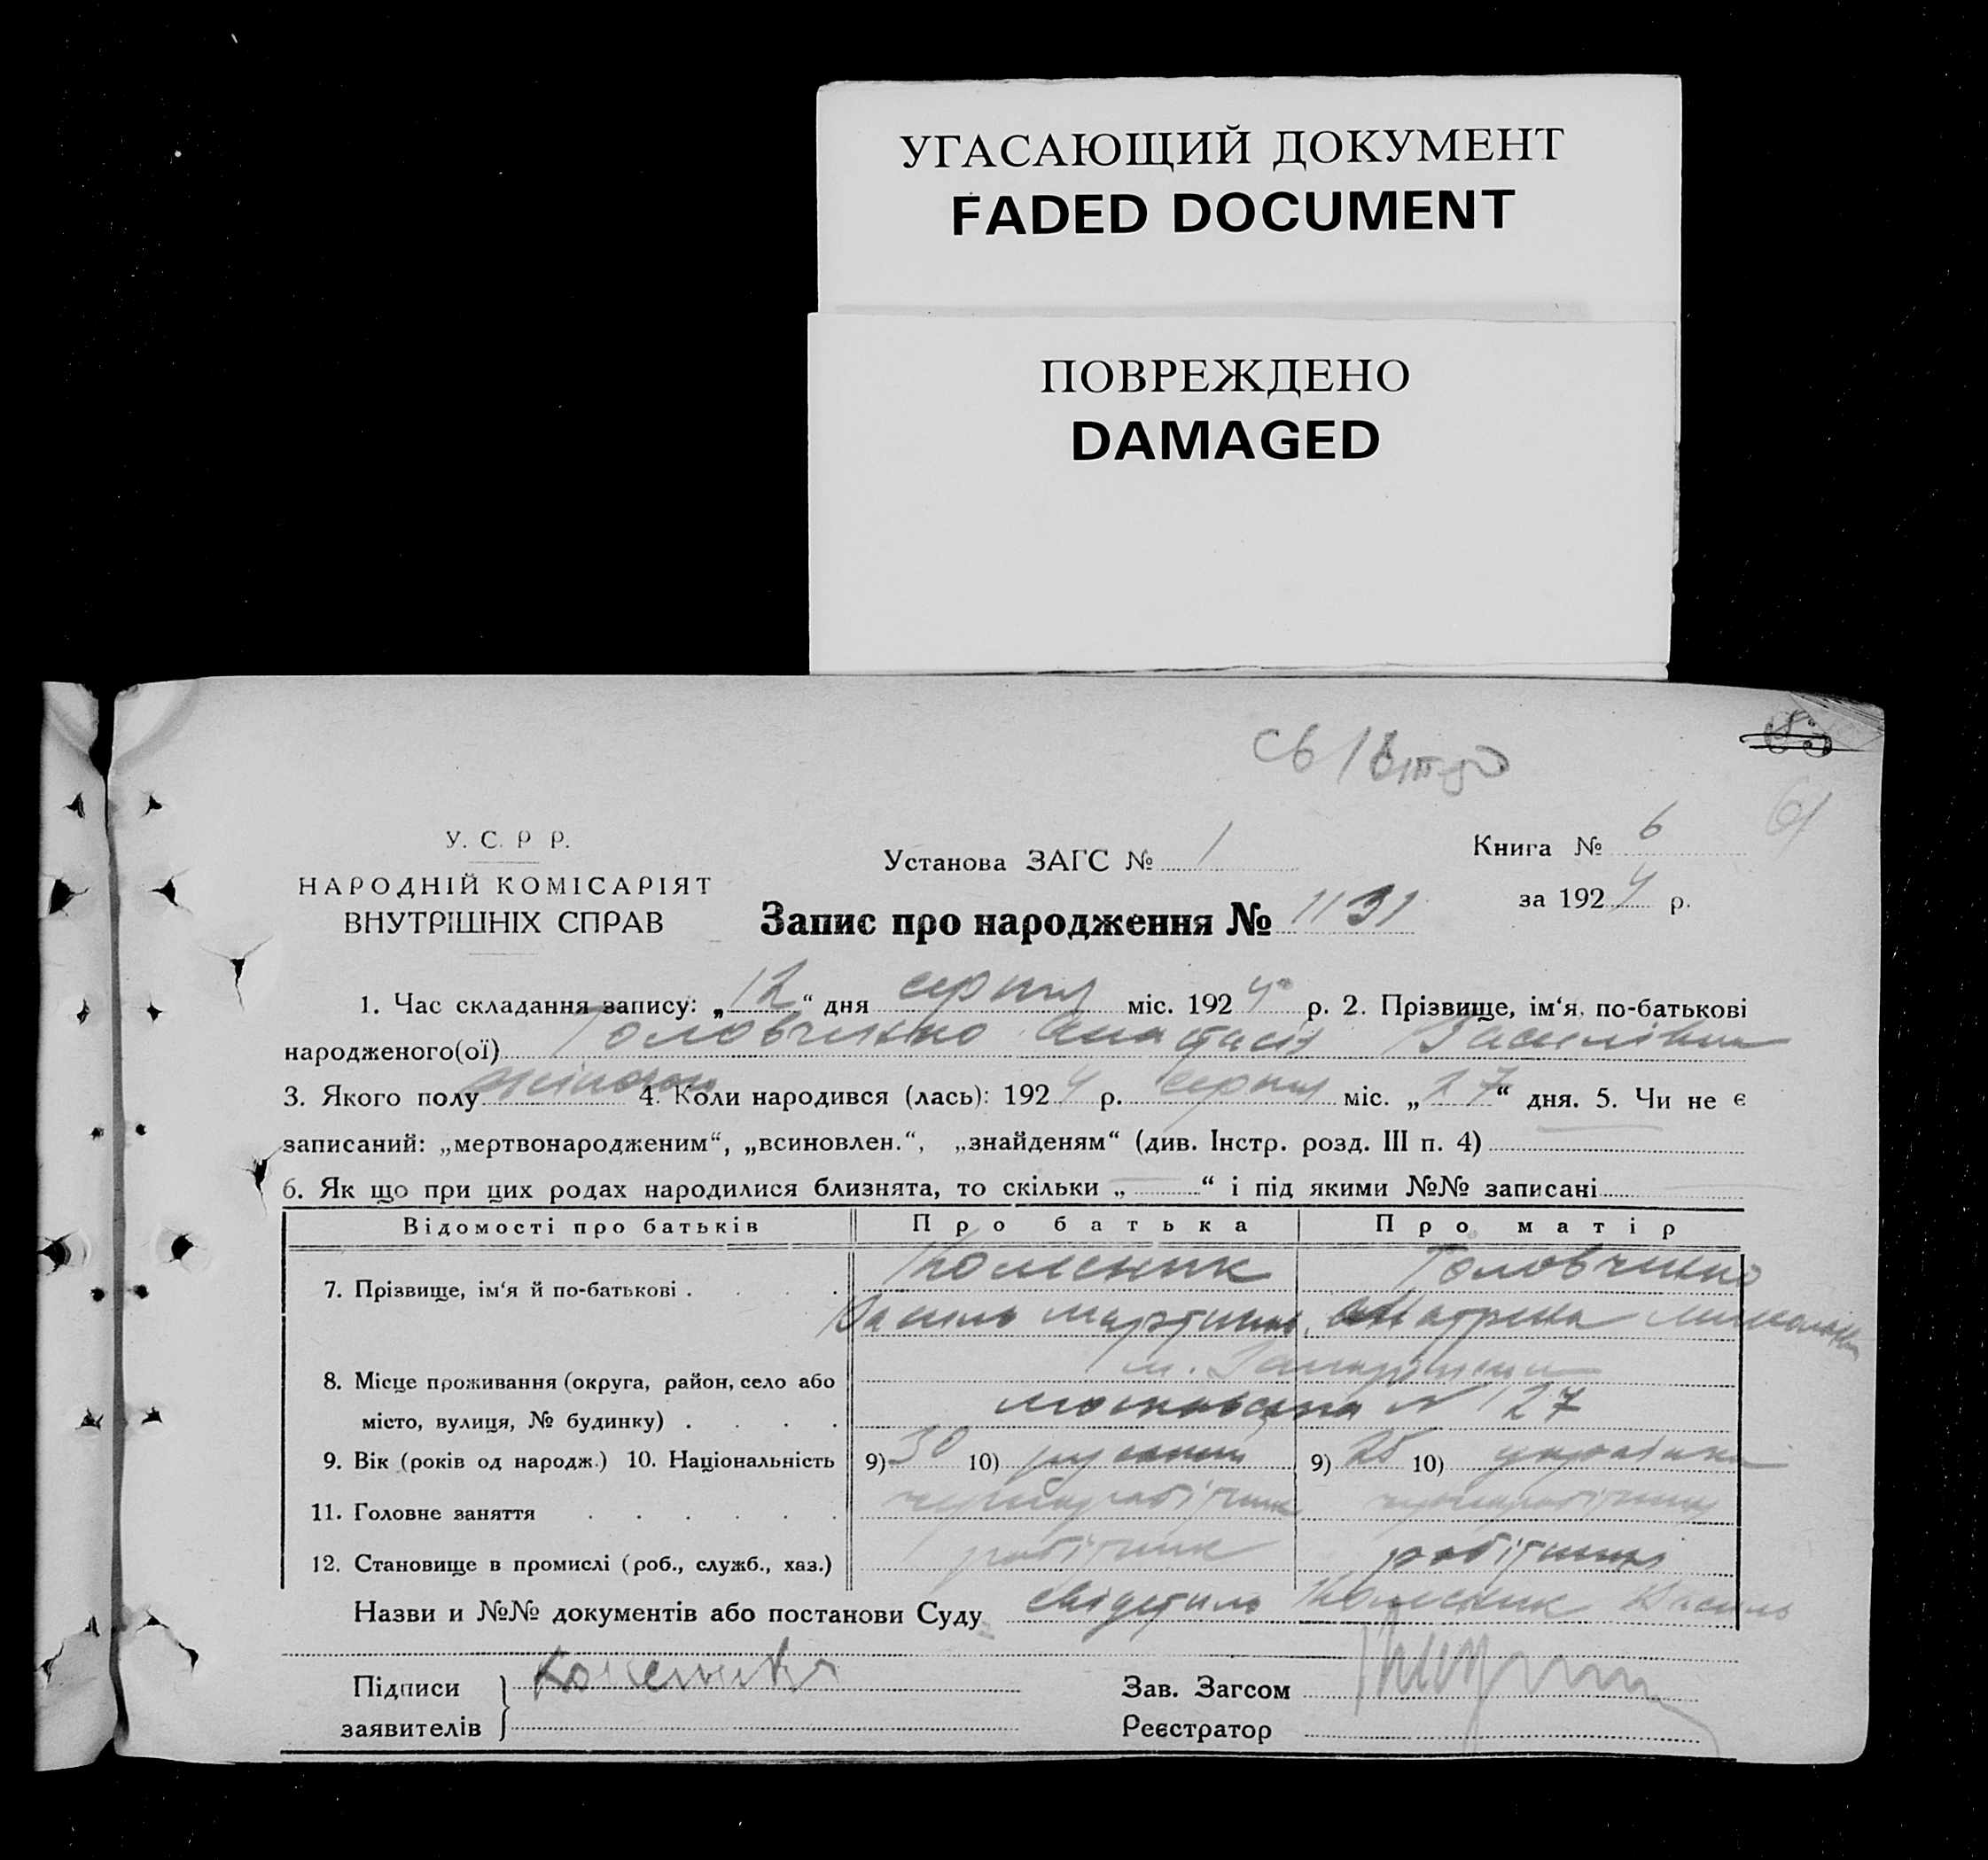 УГАСАЮЩИЙ ДОКУМЕНТ
FADED DOCUMENT
ПОВРЕЖДЕНО
DAMAGED
У. С. Р. Р.
НАРОДНІЙ КОМІСАРІЯТ
ВНУТРІШНІХ СПРАВ
Установа ЗАГС № 1
Книга № 6
за 1924 р.
Запис про народження № 1131
1. Час складання запису: „12“ дня серпня міс. 1924 р. 2. Прізвище, ім‘я, по-батькові
народженого(ої) Головченко Анастасія Василівна
3. Якого полу жіночого 4. Коли народився (лась): 1924 р. серпня міс. „27“ дня. 5. Чи не є
записаний: „мертвонародженим“, „всиновлен.“, „знайденям“ (див. Інстр. розд. III п. 4)
6. Як що при цих родах народилися близнята, то скільки „ “ і під якими №№ записані
Відомості про батьків Про батька Про матір
7. Прізвище, ім‘я й по-батькові . Колесник Головченко
Василь Мартинов. Мотрена
8. Місце проживання (округа, район, село або
місто, вулиця, № будинку) . Московська № 127
9. Вік (років од народж.) 10. Національність 9) 30 10) 9) 25 10) українка
11. Головне заняття чорноробітник чорноробітниця
12. Становище в промислі (роб., служб., хаз.) робітник робітниця
Назви и №№ документів або постанови Суду Колесник Василь
Підписи
заявителів
Зав. Загсом
Реєстратор